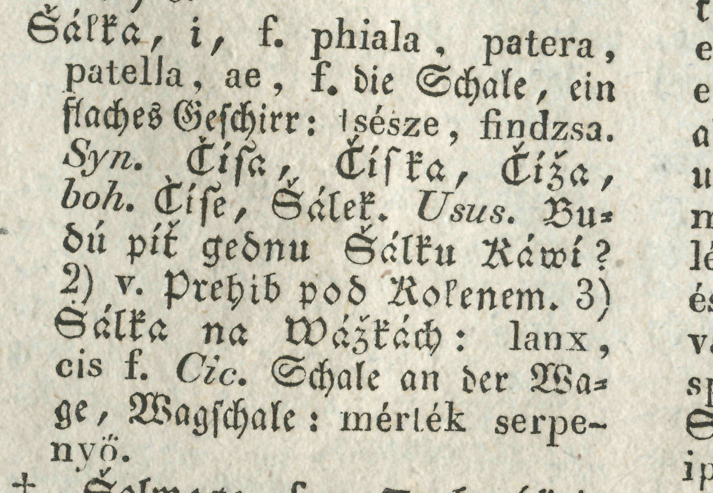 Šálka, i, f. phiala, patera,
patella, ae, f. die Schale, ein
flaches Geschirr: tsésze, findzsa.
Syn. Čísa, Číska, Číža,
boh. Číse, Šálek. Usus. Bu-
dú píť gednu Šálku Káwí?
2) v. Prehib pod Kolenem. 3)
Šálka na Wážkách: lanx,
cis f. Cic. Schale an der Wa-
ge, Wagschale: mérték serpe-
nyő.